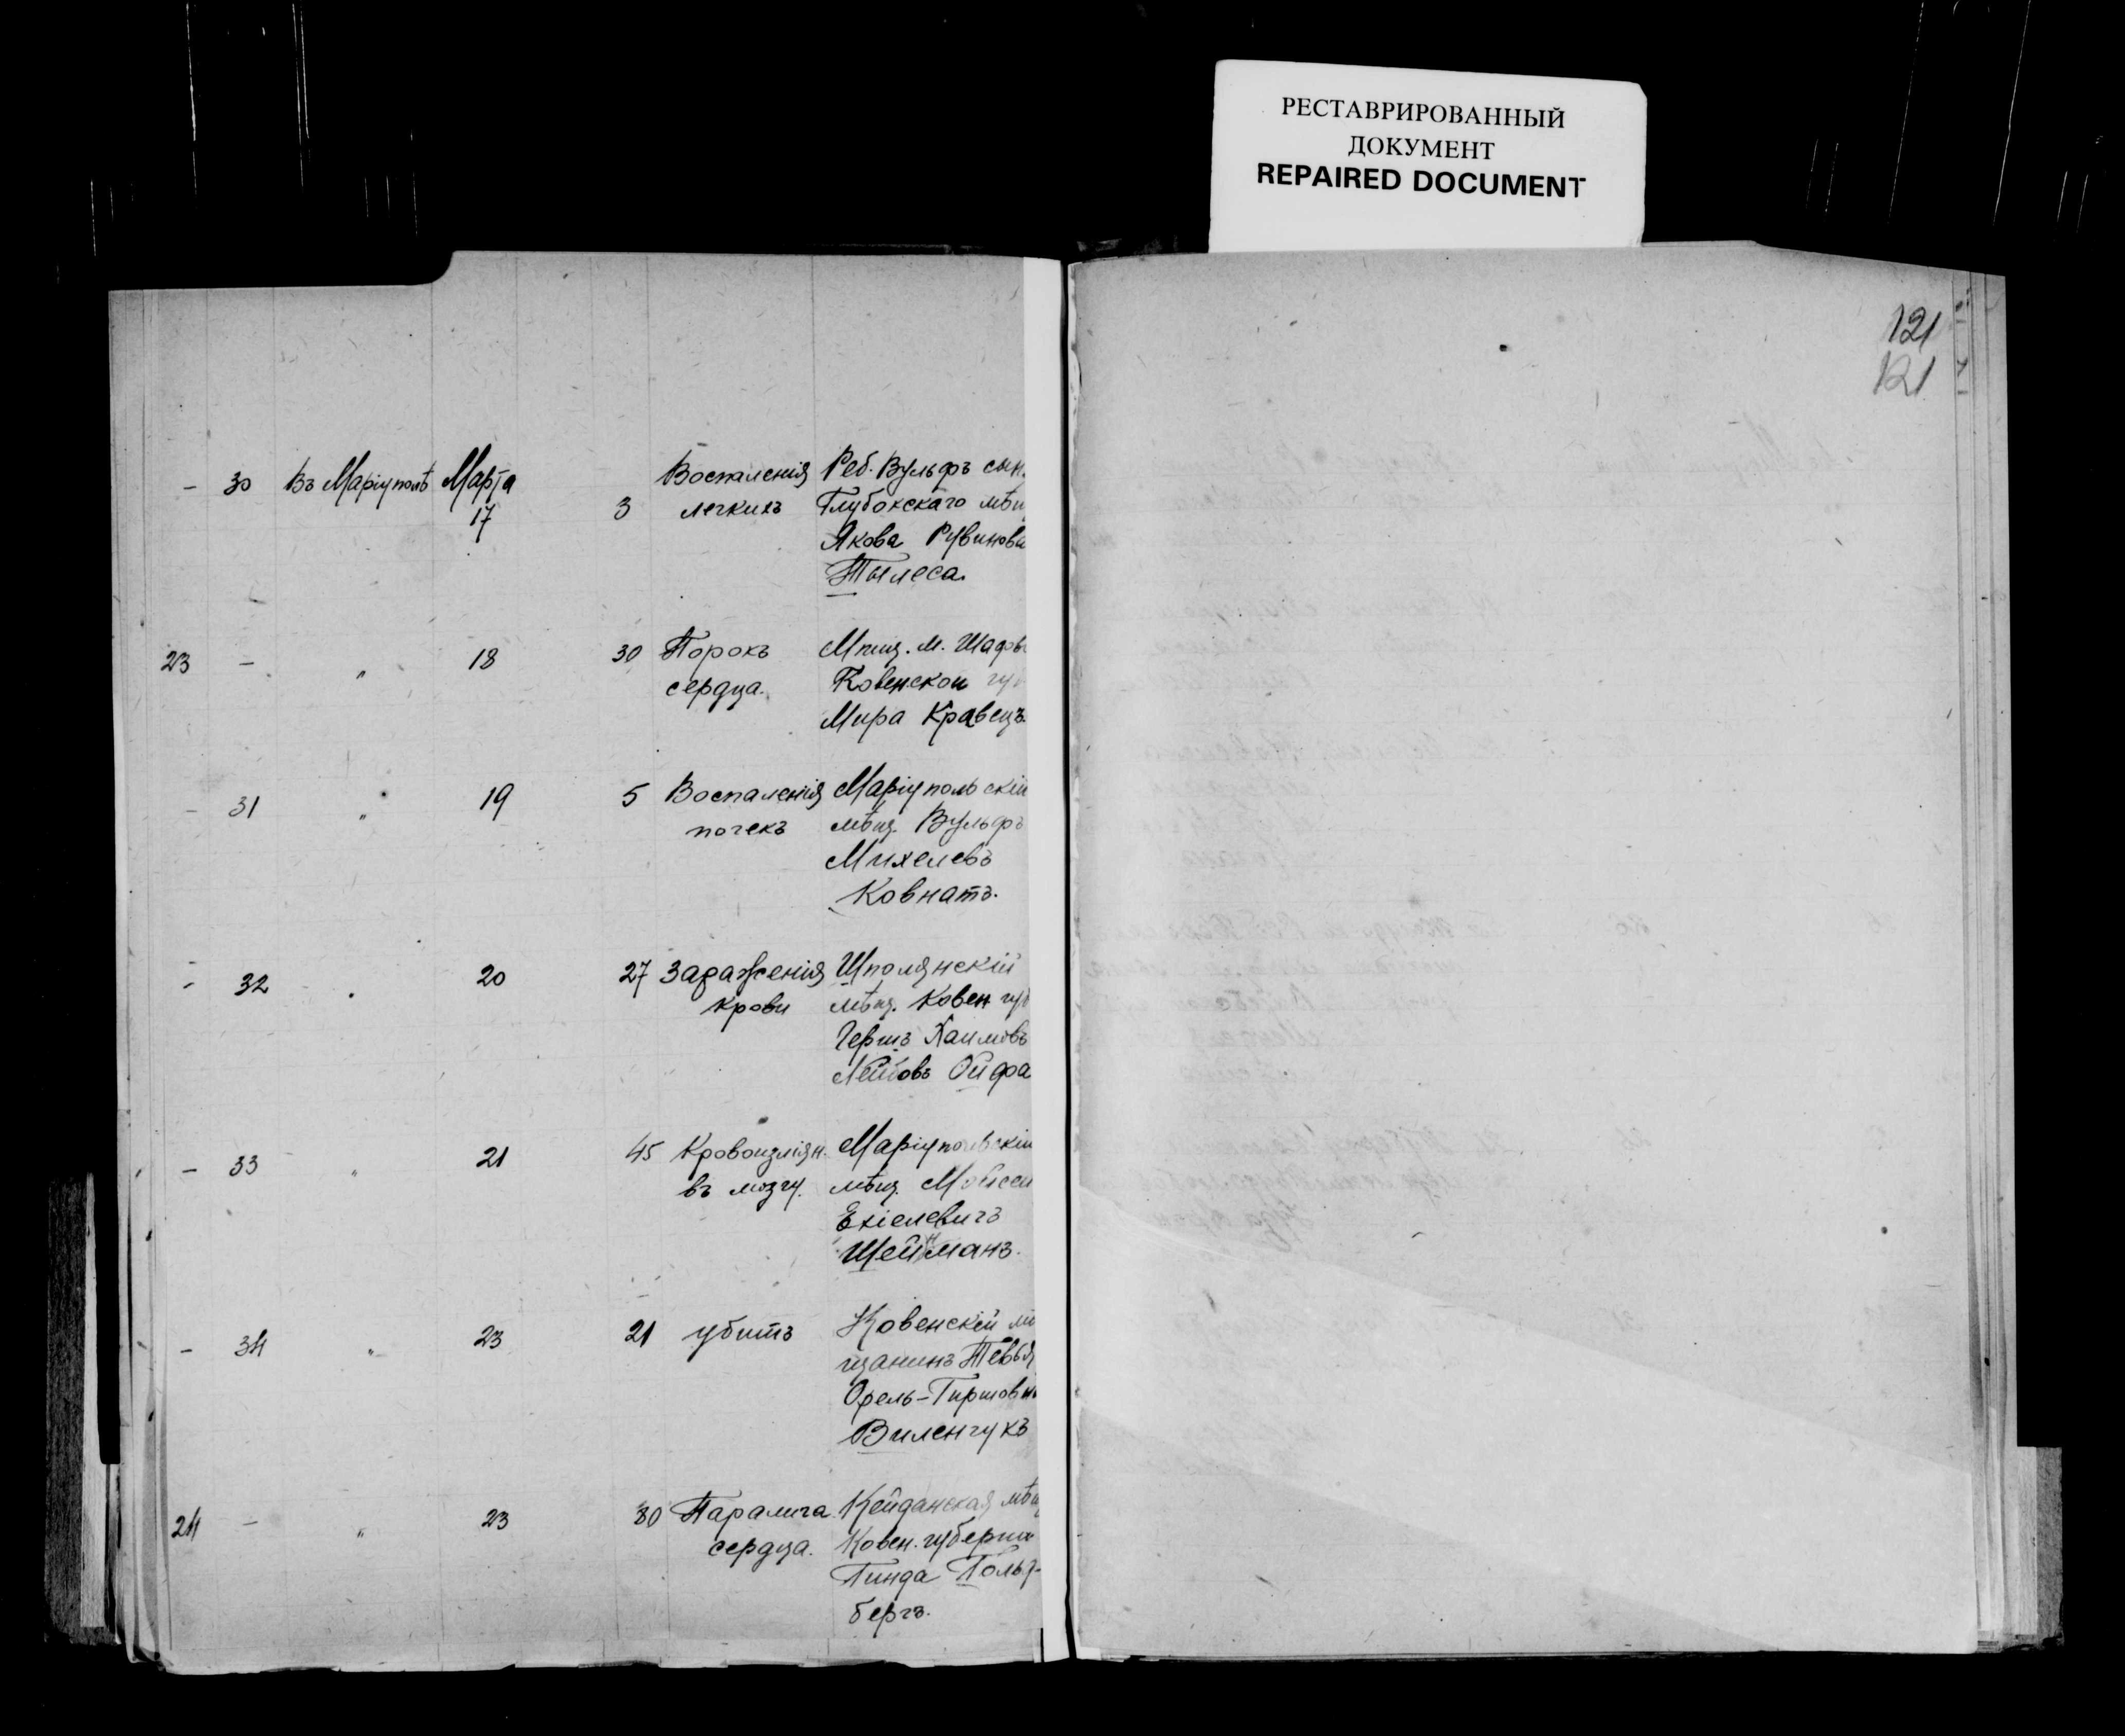 РЕСТАВРИРОВАННЫЙ
ДОКУМЕНТ
REPAIRED DOCUMENT
121
121
- 30 Въ Маріуполѣ Марта 17 3 Воспаленія Реб. Вульфъ сын.
легкихъ Глубокскаго мѣщ
Якова Рувинова
Тылеса.
23 - " 18 30 Порокъ Мѣщ. м. Шадов
сердца. Ковенской гу
Мира Кравецъ.
- 31 " 19 5 Воспаленія Маріупольскій
почекъ мѣщ. Вульфъ
Михелевъ
Ковнатъ.
- 32 " 20 27 Зараженія Шполянскій
крови мѣщ. Ковен губ
Гершъ Хаимовъ
Лейбовъ Ойфа
- 33 " 21 45 Кровоизліян. Маріупольскій
въ мозгу. мѣщ. Мойсей
Ехіелевичъ
Шейманъ.
- 34 " 23 21 убитъ Ковенскій мѣ
щанинъ Тевья
Орель-Гиршов
Виленчукъ
24 - " 23 80 Паралича Кейданская мѣщ
сердца. Ковен. губерніи
Гинда Гольд-
бергъ.